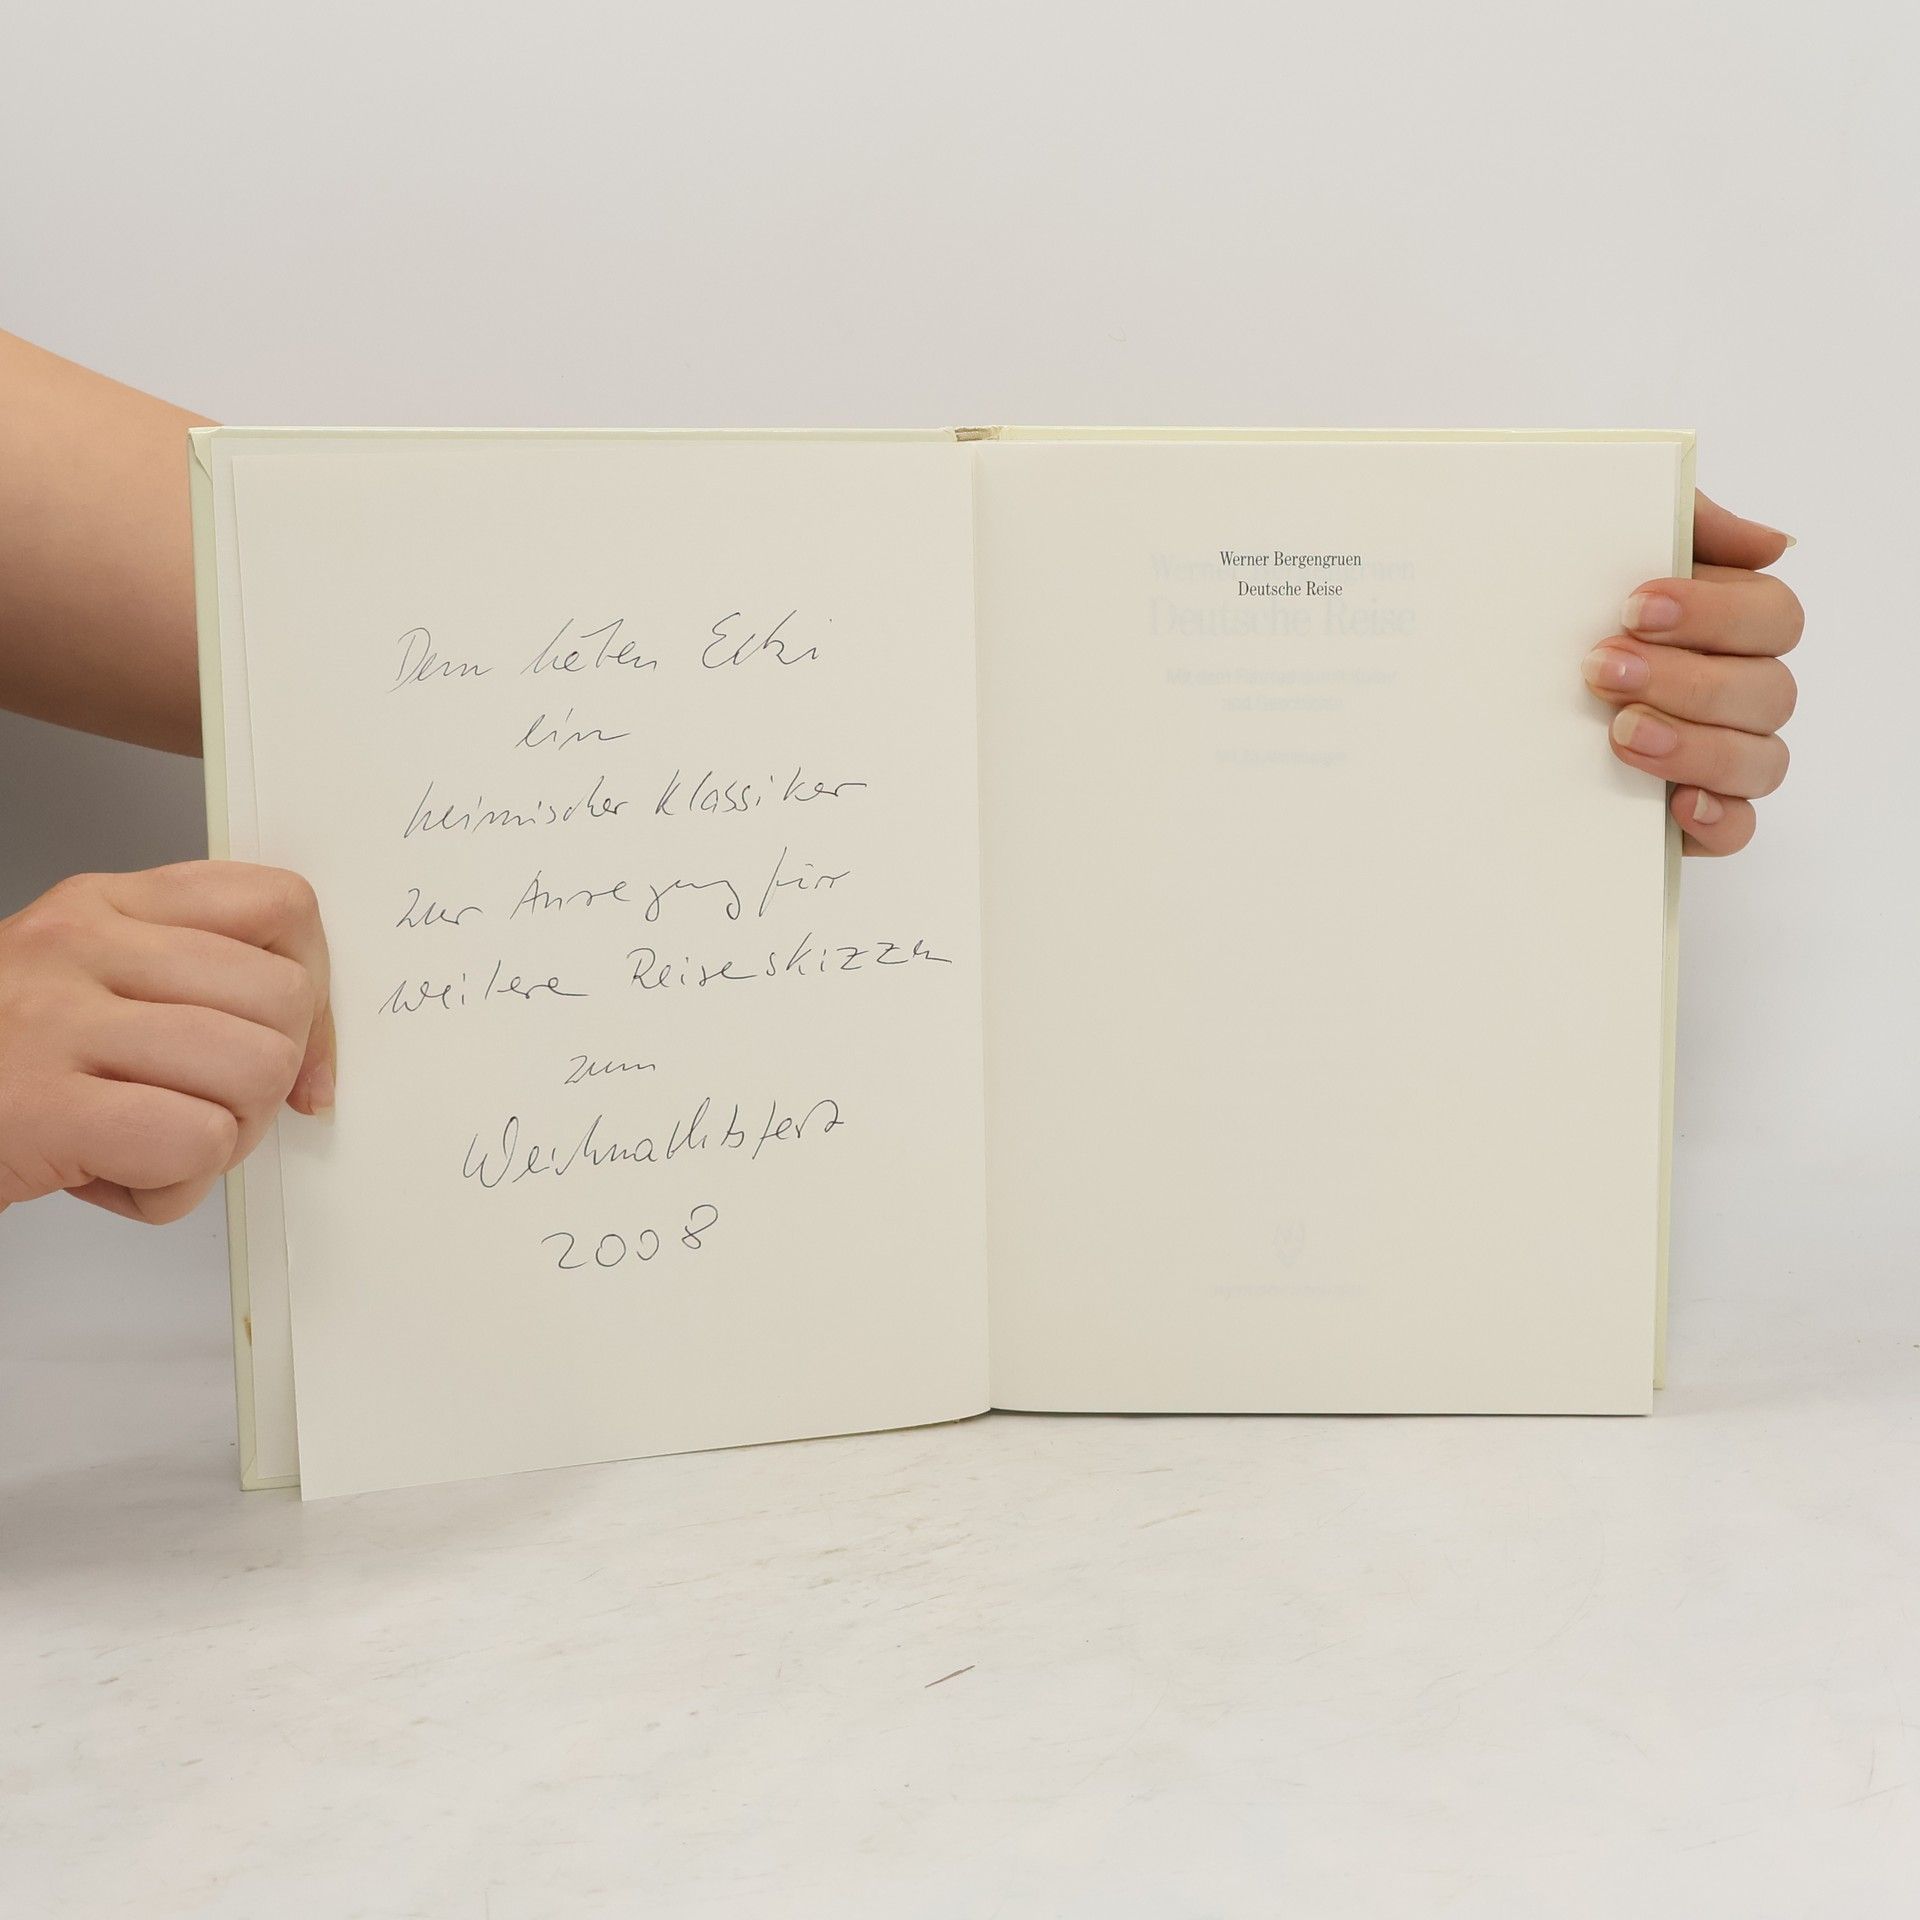 Dem lieben Ecki
ein
heimischer Klassiker
zur Anregung für
weitere Reiseskizzen
zum
Weihnachtsfest
2008
Werner Bergengruen
Deutsche Reise
Werner Bergengruen
Deutsche Reise